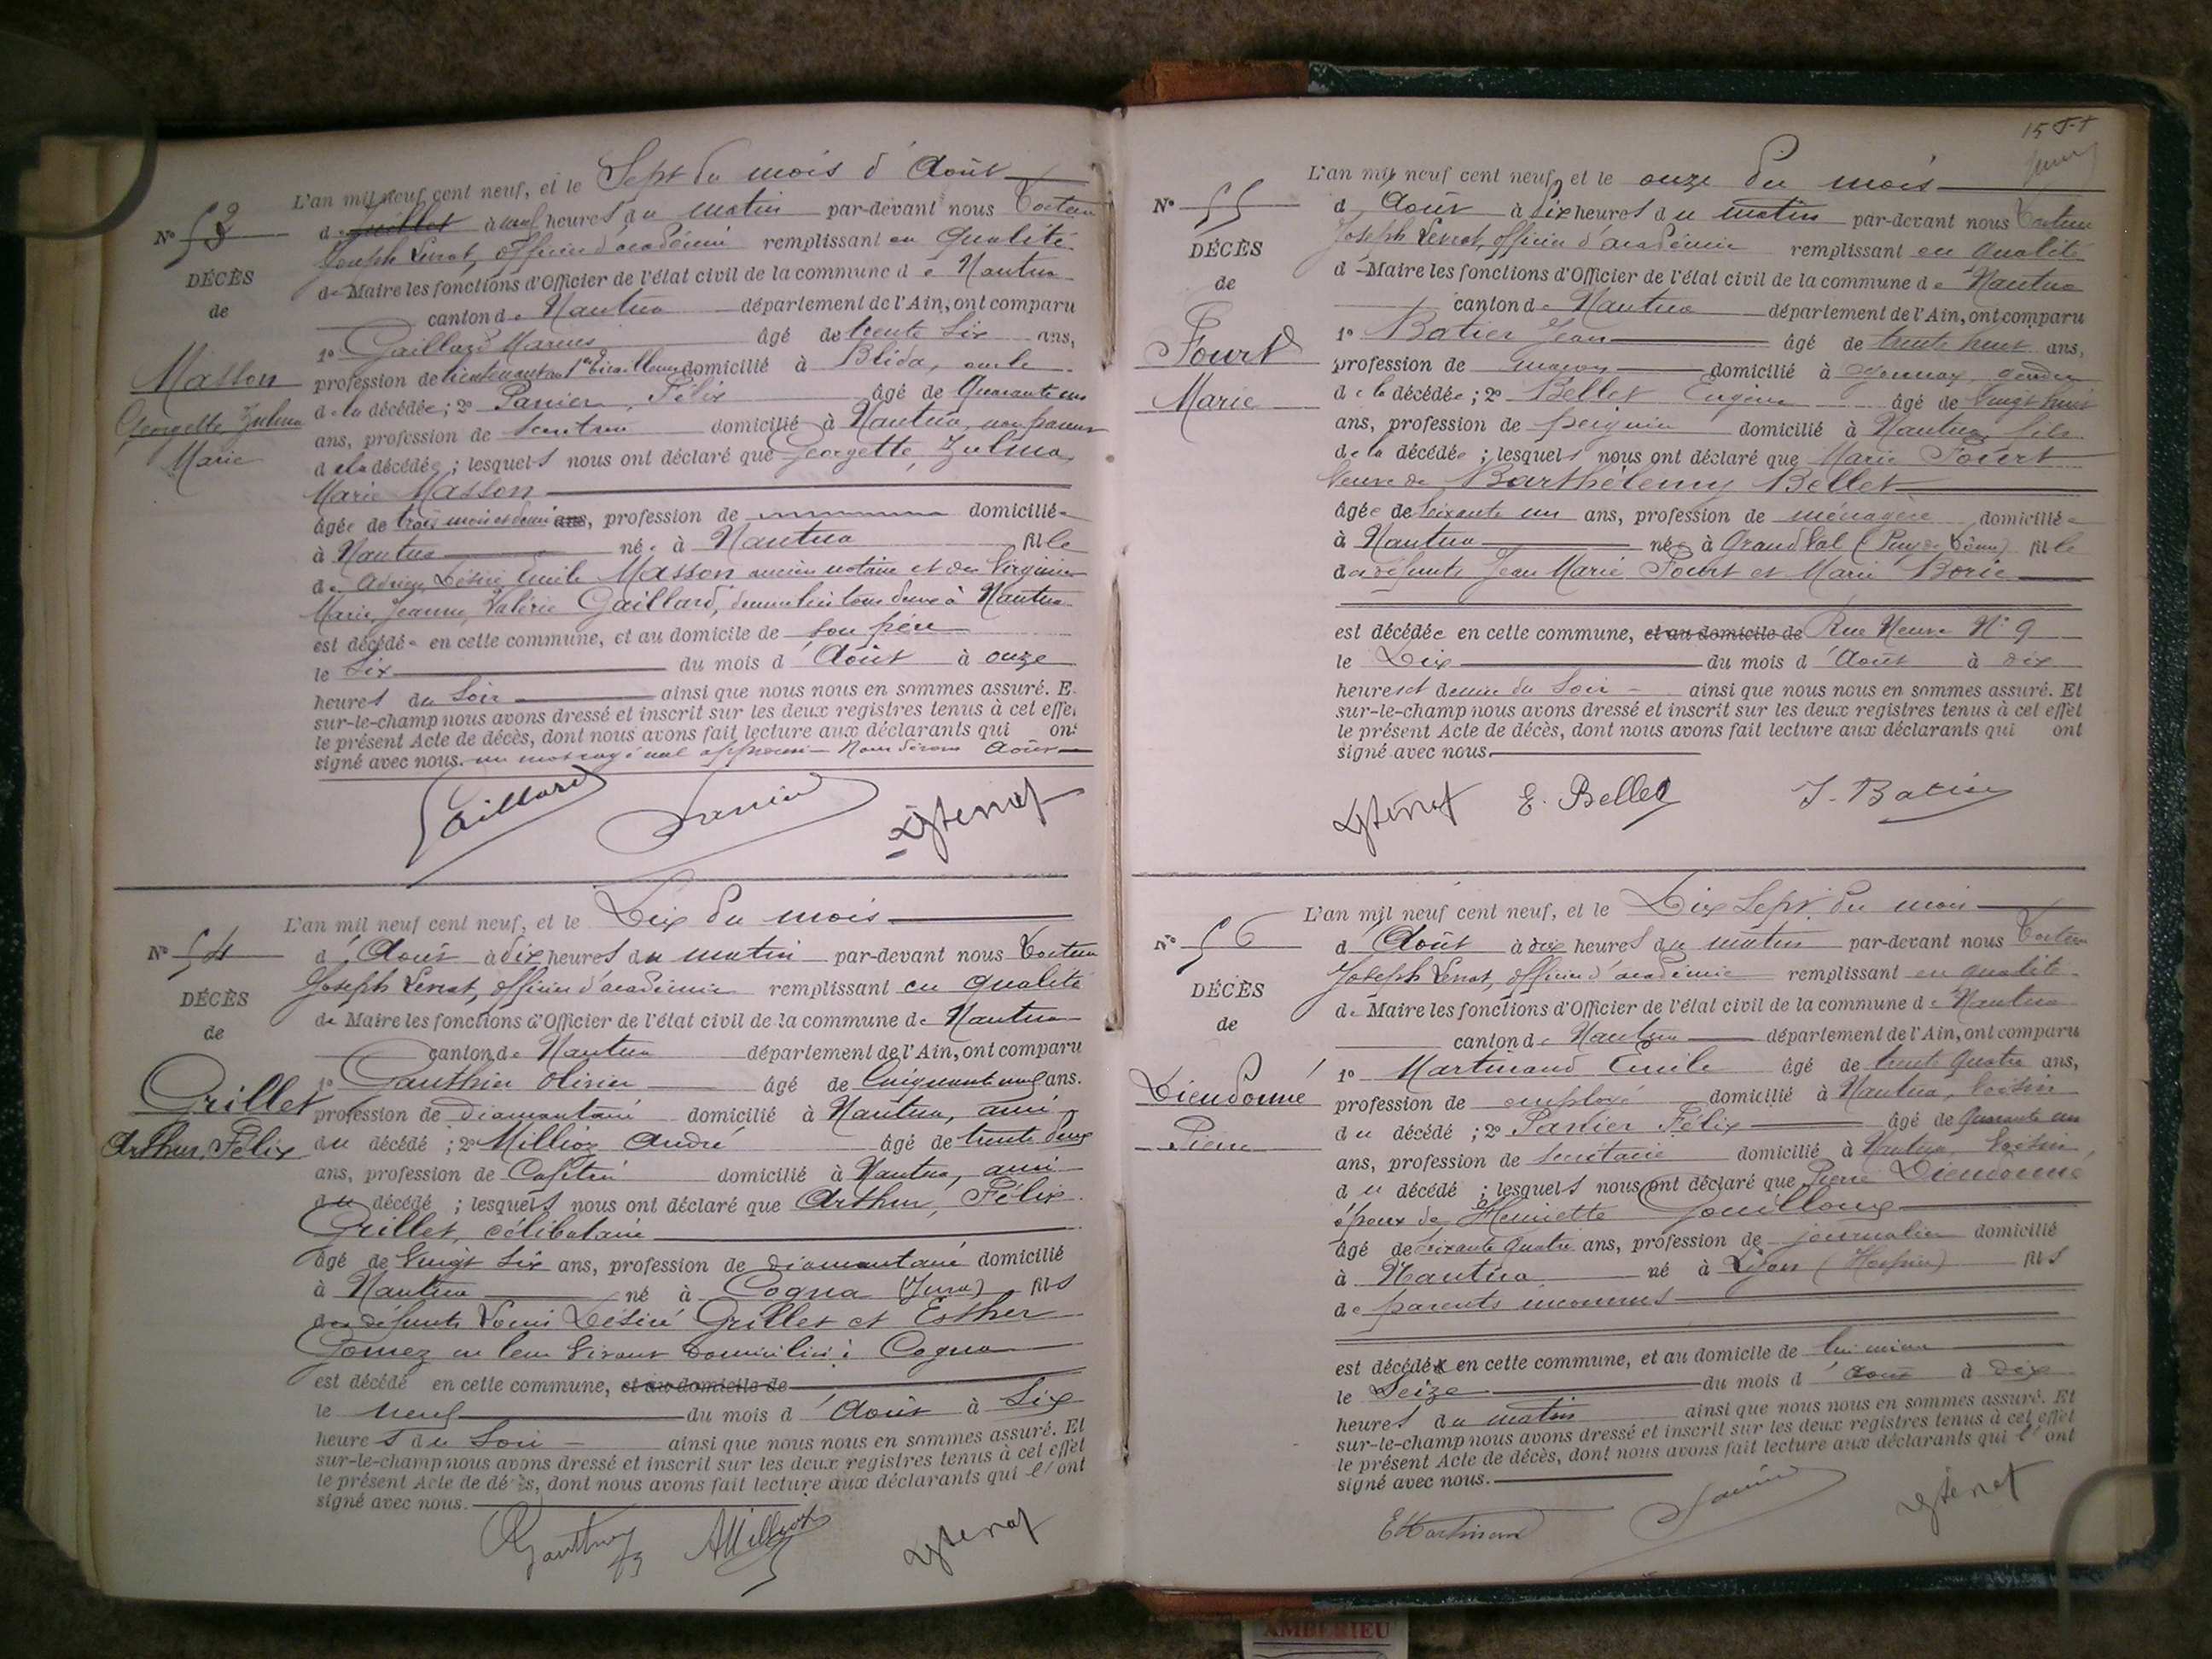 L'an mil neuf cent neuf, et le Sept du mois d'Août
N° 53
d juillet à neuf heures du matin par-devant nous Docteur
Joseph officier d'académie remplissant en qualité
DÉCÈS
de Maire les fonctions d'Officier de l'état civil de la commune de Nantua
de
canton de Nantua département de l'Ain, ont comparu
1° Gaillard Marius âgé de trente six ans,
Masson
profession de lieutenant au 1er Tirailleurs domicilié à Blida, oncle
Georgette Zulma
Marie
de la décédée ; 2° Félix âgé de Quarante un
ans, profession de domicilié à Nantua, non parent
de la décédée ; lesquels nous ont déclaré que Georgette, Zulma,
Marie Masson
âgée de trois mois et demi ans, profession de domiciliée
à Nantua née à Nantua fille
de Désiré Emile Masson ancien notaire et de
Marie, Jeanne, Valérie Gaillard, tous deux à Nantua
est décédée en cette commune, et au domicile de son père
le Six du mois d'Août à onze
heures du Soir ainsi que nous nous en sommes assuré. E
sur-le-champ nous avons dressé et inscrit sur les deux registres tenus à cet effet
le présent Acte de décès, dont nous avons fait lecture aux déclarants qui ont
signé avec nous. un mot rayé nul Août
Gaillard
L'an mil neuf cent neuf, et le Dix du mois
N° 54
d'Août à dix heures du matin par-devant nous Docteur
Joseph officier d'académie remplissant en qualité
DÉCÈS
de Maire les fonctions d'Officier de l'état civil de la commune de Nantua
de
canton de Nantua département de l'Ain, ont comparu
Grillet
Arthur, Félix
1° Gauthier Olivier âgé de Cinquante neuf ans.
profession de diamantaire domicilié à Nantua, ami
du décédé ; 2° Millioz André âgé de trente deux
ans, profession de Cafetier domicilié à Nantua, ami
du décédé ; lesquels nous ont déclaré que Arthur, Félix
Grillet, célibataire
âgé de Vingt Six ans, profession de diamantaire domicilié
à Nantua né à Cogna (Jura) fils
des défunts Louis Désiré Grillet et Esther
en leur vivant domiciliés à Cogna
est décédé en cette commune, et au domicile de
le neuf du mois d'Août à Six
heures du Soir ainsi que nous nous en sommes assuré. Et
sur-le-champ nous avons dressé et inscrit sur les deux registres tenus à cet effet
le présent Acte de décès, dont nous avons fait lecture aux déclarants qui l'ont
signé avec nous.
Gauthier AMillioz
L'an mil neuf cent neuf, et le onze du mois
N° 55
d'Août à dix heures du matin par-devant nous Docteur
Joseph officier d'académie remplissant en qualité
DÉCÈS
de Maire les fonctions d'Officier de l'état civil de la commune de Nantua
de
canton de Nantua département de l'Ain, ont comparu
Fourt
Marie
1° Batier Jean âgé de trente huit ans,
profession de maçon domicilié à Oyonnax, gendre
de la décédée ; 2° Bellet Eugène âgé de Vingt huit
ans, profession de domicilié à Nantua, fils
de la décédée ; lesquels nous ont déclaré que Marie Fourt
Veuve de Barthélemy Bellet
âgée de Soixante un ans, profession de ménagère domiciliée
à Nantua née à Grandval (Puy de Dôme) fille
des défunts Jean Marie Fourt et Marie Borie
est décédée en cette commune, et au domicile de Rue Neuve N° 9
le Dix du mois d'Août à dix
heures et demie du Soir ainsi que nous nous en sommes assuré. Et
sur-le-champ nous avons dressé et inscrit sur les deux registres tenus à cet effet
le présent Acte de décès, dont nous avons fait lecture aux déclarants qui ont
signé avec nous.
E. Bellet J. Batier
L'an mil neuf cent neuf, et le Dix Sept du mois
N° 56
d'Août à dix heures du matin par-devant nous Docteur
Joseph officier d'académie remplissant en qualité
DÉCÈS
de Maire les fonctions d'Officier de l'état civil de la commune de Nantua
de
canton de Nantua département de l'Ain, ont comparu
Dieudonné
Pierre
1° Martinand Emile âgé de trente Quatre ans,
profession de employé domicilié à Nantua, Voisin
du décédé ; 2° Félix âgé de Quarante un
ans, profession de Secrétaire domicilié à Nantua, Voisin
du décédé ; lesquels nous ont déclaré que Pierre Dieudonné,
époux de Henriette Gouilloux
âgé de Soixante Quatre ans, profession de journalier domicilié
à Nantua né à Lyon (Hospice) fils
de parents inconnus
est décédé en cette commune, et au domicile de lui même
le Seize du mois d'Août à dix
heures du matin ainsi que nous nous en sommes assuré. Et
sur-le-champ nous avons dressé et inscrit sur les deux registres tenus à cet effet
le présent Acte de décès, dont nous avons fait lecture aux déclarants qui l'ont
signé avec nous.
EMartinand
AMBERIEU